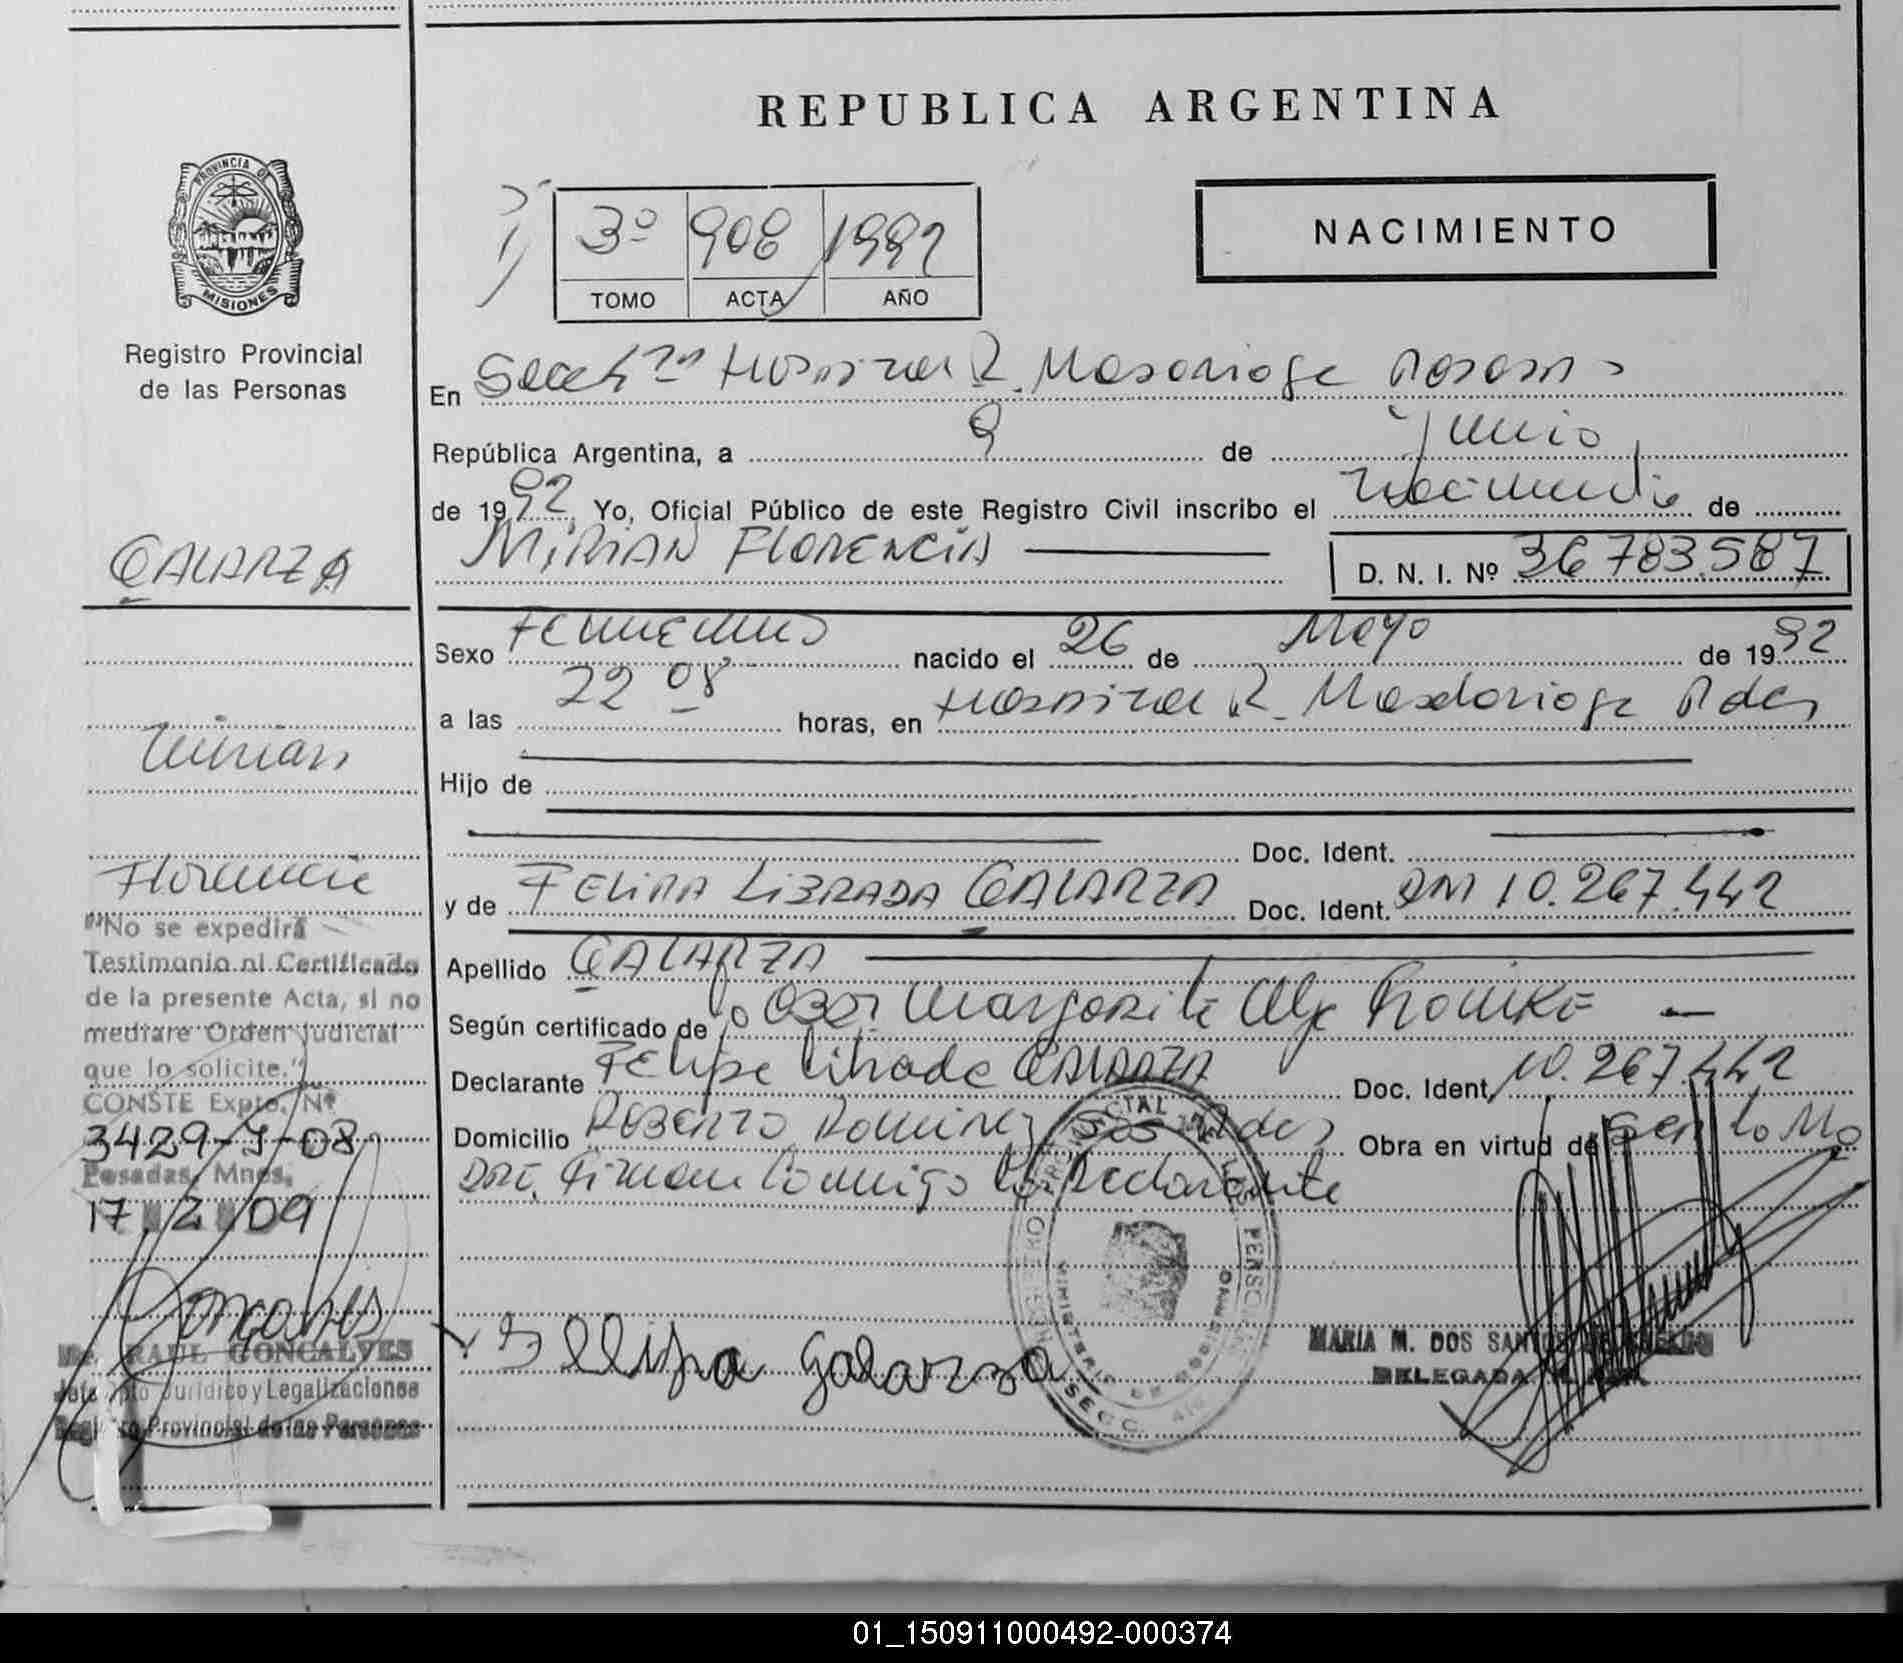 REPUBLICA ARGENTINA
PROVINCIA DE
MISIONES
Registro Provincial
de las Personas
3º 908 1992
TOMO ACTA AÑO
NACIMIENTO
En Hospital R. Madariaga Posadas
República Argentina, a 9 de Junio
de 1992, Yo, Oficial Público de este Registro Civil inscribo el Nacimiento de
MIRIAN FLORENCIA
D. N. I. Nº 36783.587
GALARZA
Mirian
Florencia
Sexo Femenino nacido el 26 de Mayo de 1992
a las 22 08 horas, en Hospital R. Madariaga Pdas
Hijo de
Doc. Ident.
y de FELIPA LIBRADA GALARZA Doc. Ident. DNI 10.267.442
Apellido GALARZA
Según certificado de Margarita
Declarante Felipa Librada GALARZA Doc. Ident. 10.267.442
Domicilio Roberto Ramirez Pdas Obra en virtud de ser la Ma
dre. Firman conmigo la Declarante
"No se expedirá
Testimonio ni Certificado
de la presente Acta, si no
mediare Orden Judicial
que lo solicite."
CONSTE Expte. Nº
3429-J-08
Posadas, Mnes,
17 2 09
Goncalves
RAUL GONCALVES
Jefe Dpto Jurídico y Legalizaciones
Registro Provincial de las Personas
Galarza
REGISTRO PROVINCIAL DE LAS PERSONAS
MINISTERIO DE GOBIERNO
SECC.
MARIA M. DOS SANTOS
DELEGADA
01_150911000492-000374